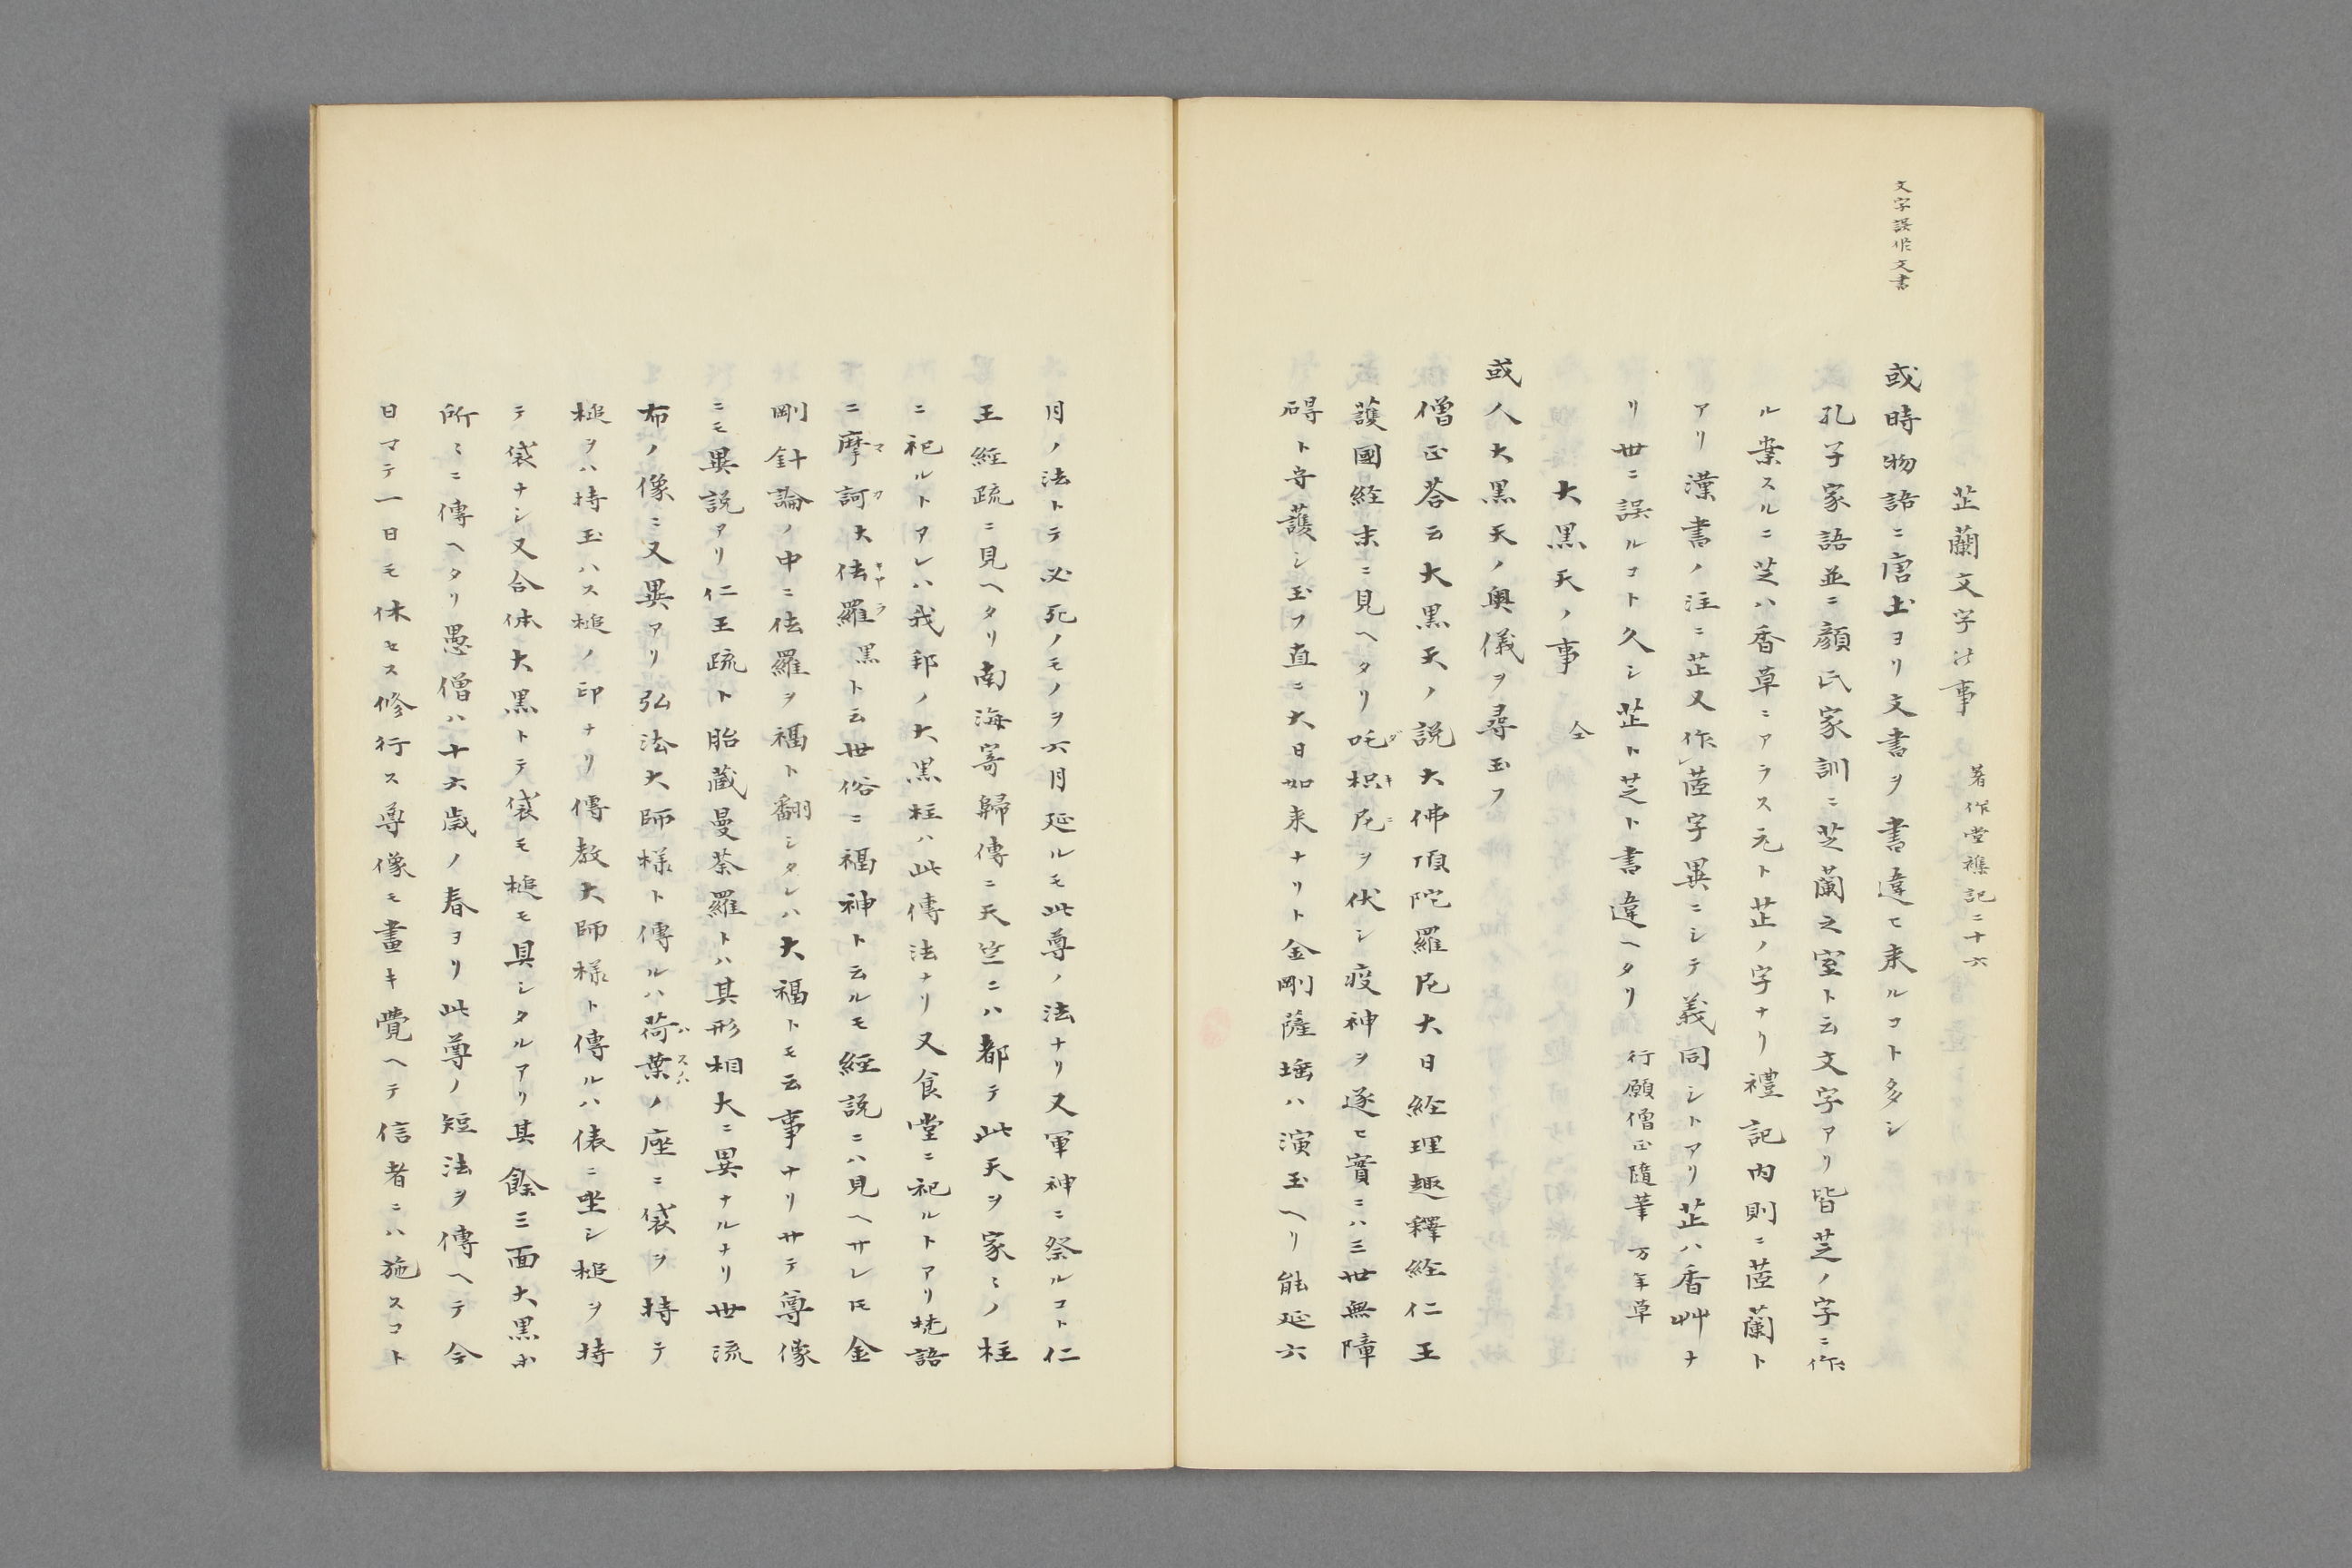 芷蘭文字の事
著作堂襍記二十六
文字誤作文書
或時物語ニ唐土ヨリ文書ヲ書違ヒ来ルコト多シ
孔子家語並ニ顔氏家訓ニ芝蘭之室ト云文字アリ皆芝ノ字ニ作
ル案スルニ芝ハ香草ニアラス元ト芷ノ字ナリ禮記内則ニ茝蘭ト
アリ漢書ノ注ニ芷又作茝字異ニシテ義同シトアリ芷ハ香艸ナ
リ世ニ誤ルコト久シ芷ト芝ト書違ヘタリ
行願僧正隨筆 万年草
大黒天ノ事 仝
或人大黒天ノ奥儀ヲ尋玉フ
僧正荅云大黒天ノ説大佛頂陀羅尼大日経理趣釋経仁王
護國経末ニ見ヘタリ吒枳尼ヲ伏シ疫神ヲ逐ヒ實ニハ三世無障
碍ト守護シ玉フ直ニ大日如来ナリト金剛薩埵ハ演玉ヘリ能延六
月ノ法トテ必死ノモノヲ六月延ルモ此尊ノ法ナリ又軍神ニ祭ルコト仁
王経疏ニ見ヘタリ南海寄歸傳ニ天竺ニハ都テ此天ヲ家ミノ柱
ニ祀ルトアレハ我邦ノ大黒柱ハ此傳法ナリ又食堂ニ祀ルトアリ梵語
ニ摩訶大佉羅黒ト云世俗ニ福神ト云ルモ経説ニハ見ヘサレ𪜈金
剛針論ノ中ニ佉羅ヲ福ト翻シタレハ大福トモ云事ナリサテ尊像
ニモ異説アリ仁王疏ト胎蔵曼荼羅トハ其形相大ニ異ナルナリ世流
布ノ像ニ又異アリ弘法大師様ト傳ルハ荷葉ノ座ニ袋ヲ持テ
槌ヲハ持玉ハス槌ノ印ナリ傳教大師様ト傳ルハ俵ニ坐シ槌ヲ持
テ袋ナシ又合体大黒トテ袋モ槌モ具シタルアリ其餘三面大黒ホ
所ミニ傳ヘタリ愚僧ハ十六歳ノ春ヨリ此尊ノ短法ヲ傳ヘテ今
日マテ一日モ休セス修行ス尊像モ畫キ覺ヘテ信者ニハ施スコト